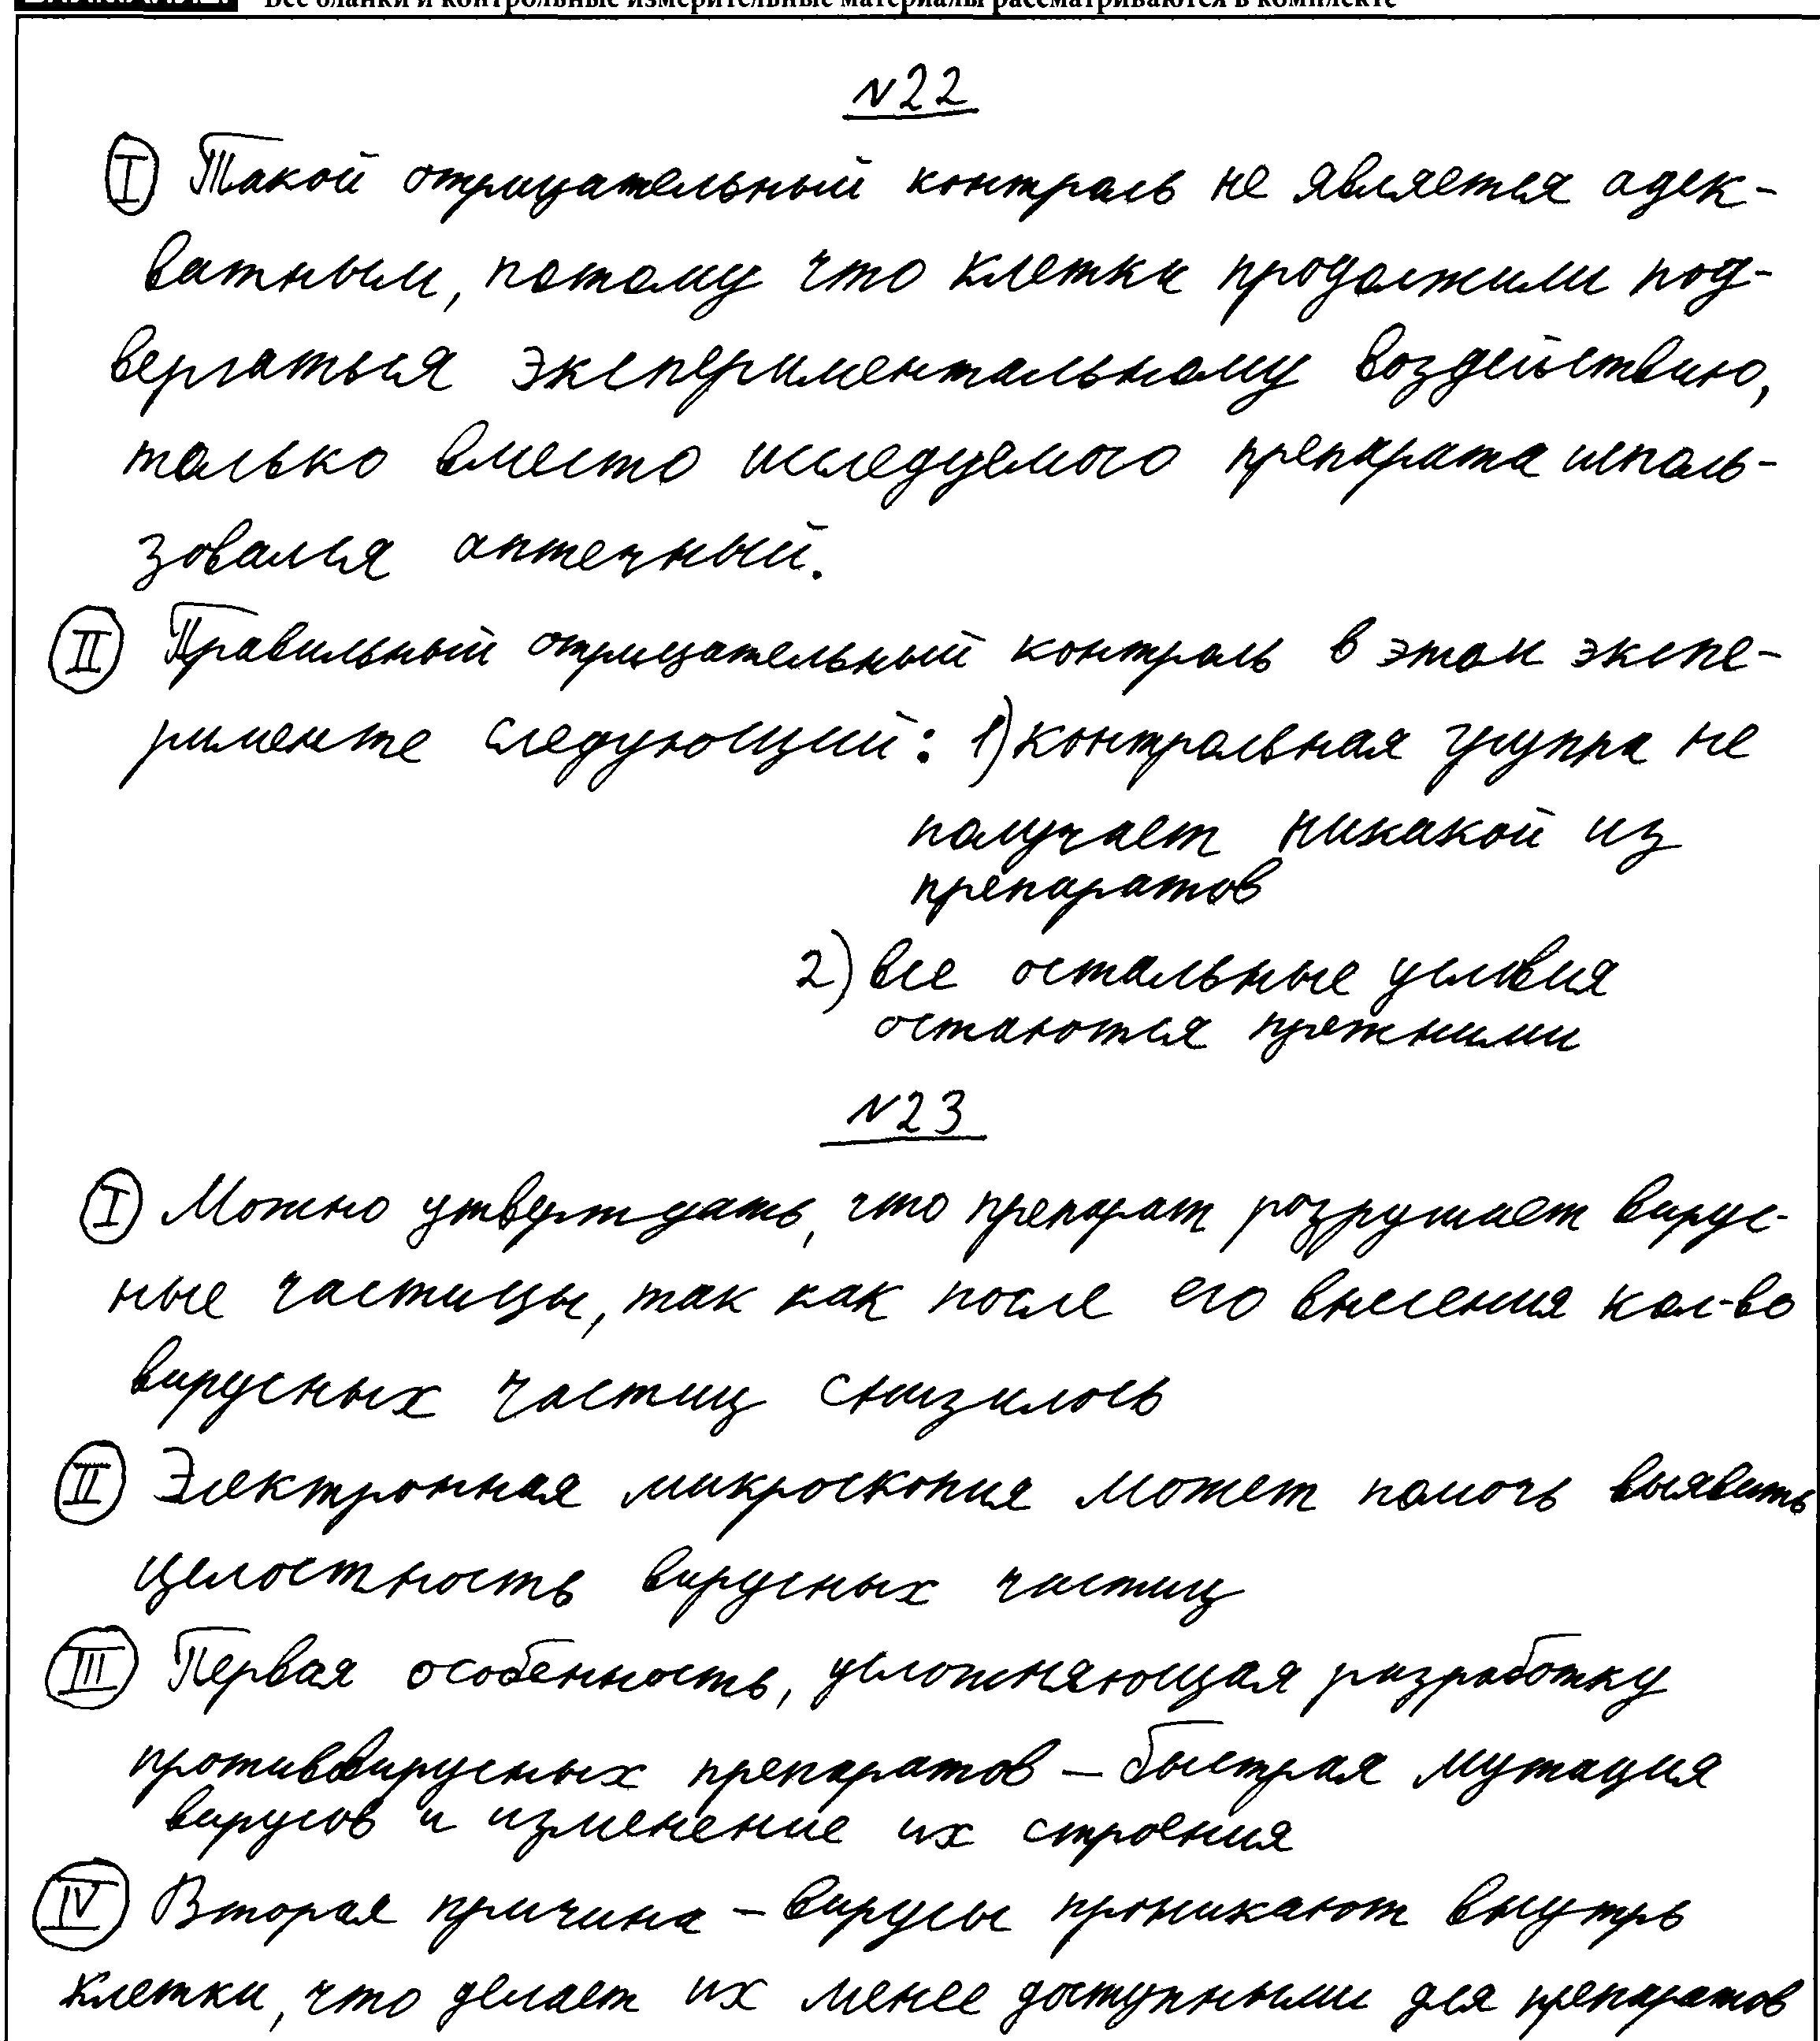 Все бланки и контрольные измерительные материалы рассматриваются в комплекте
№22
I Такой отрицательный контроль не является адек-
ватным, потому что клетки продолжили под-
вергаться экспериментальному воздействию,
только вместо исследуемого препарата исполь-
зовался аптечный.
II Правильный отрицательный контроль в этом экспе-
рименте следующий: 1) контрольная группа не
получает никакой из
препаратов
2) все остальные условия
остаются прежними
№23
I Можно утверждать, что препарат разрушает вирус-
ные частицы, так как после его внесения кол-во
вирусных частиц снизилось
II Электронная микроскопия может помочь выявить
целостность вирусных частиц
III Первая особенность, усложняющая разработку
противовирусных препаратов – быстрая мутация
вирусов и изменение их строения
IV Вторая причина – вирусы проникают внутрь
клетки, что делает их менее доступными для препаратов